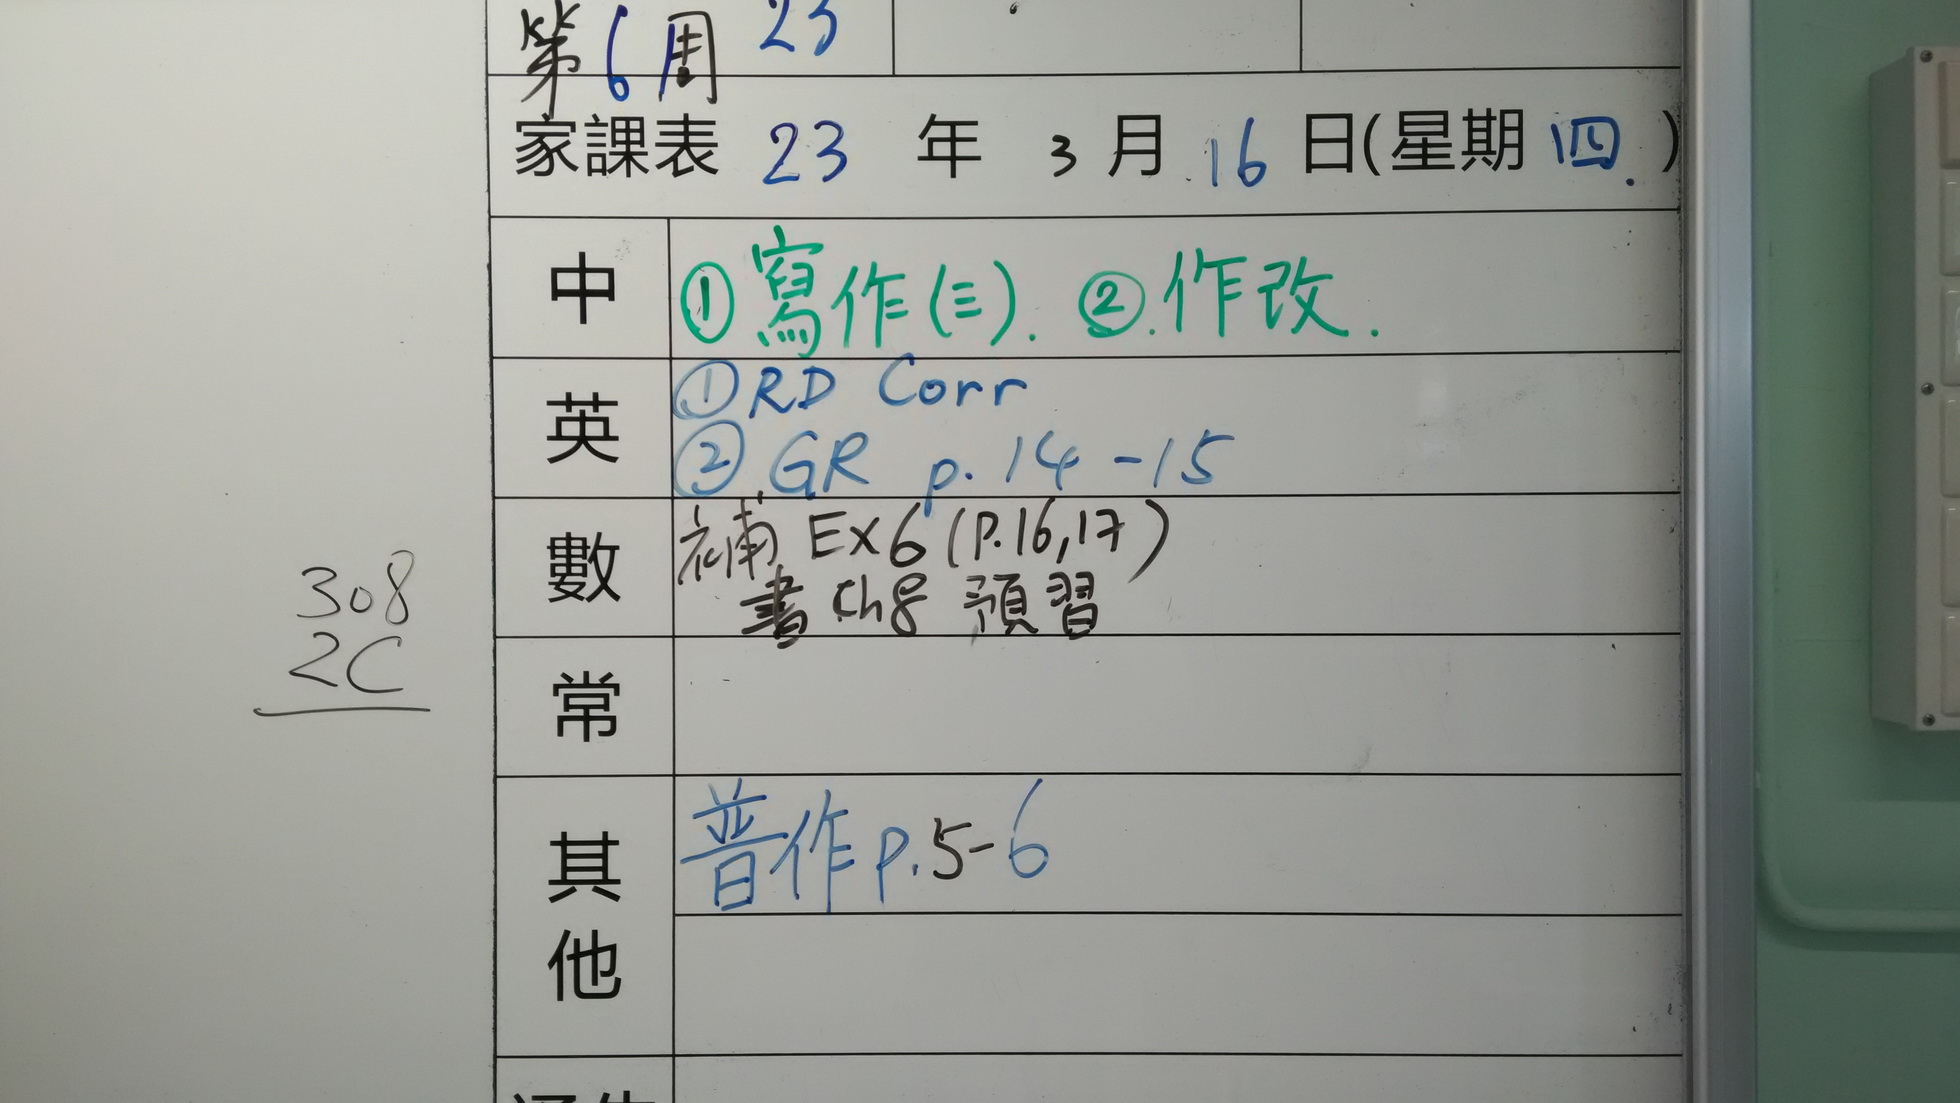 第6周 23
家課表 23 年 3 月 16 日(星期 四.)
中 ①寫作(三). ②.作改.
英 ①RD Corr
② GR p.14-15
數 補 Ex6 (P.16,17)
書 Ch8 預習
308
2C
常
其他 普作 p.5-6